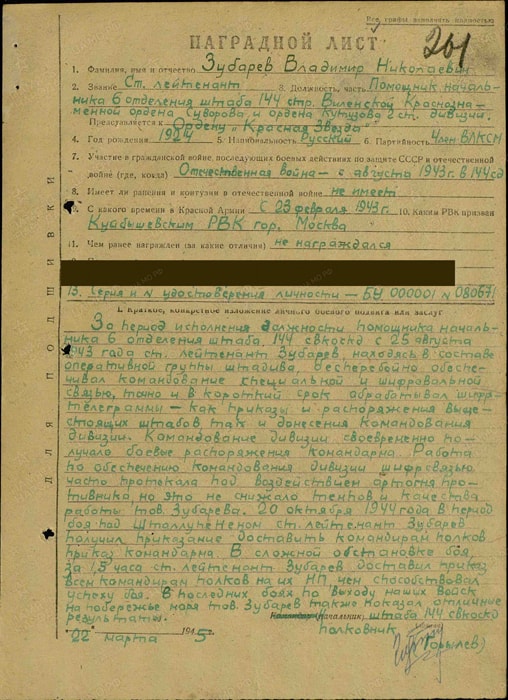 Все графы заполнять полностью
НАГРАДНОЙ ЛИСТ
201
1. Фамилия, имя и отчество Зубарев Владимир Николаевич
2. Звание Ст. лейтенант 3. Должность, часть Помощник началь-
ника 6 отделения штаба 144 стр. Виленской Краснозна-
менной ордена Суворова и ордена Кутузова 2 ст. дивизии.
Представляется к Ордену „Красная Звезда"
4. Год рождения 1924 5. Национальность Русский 6. Партийность Член ВЛКСМ
7. Участие в гражданской войне, последующих боевых действиях по защите СССР и отечественной
войне (где, когда) Отечественная война – с августа 1943 г. в 144 сд
8. Имеет ли ранения и контузии в отечественной войне не имеет
9. С какого времени в Красной Армии С 23 февраля 1943 г. 10. Каким РВК призван
Куйбышевским РВК гор. Москва
11. Чем ранее награжден (за какие отличия) не награждался
13. Серия и N удостоверения личности – БУ 000001 N 080671
I. Краткое, конкретное изложение личного боевого подвига или заслуг
За период исполнения должности помощника началь-
ника 6 отделения штаба, 144 свкоскд с 25 августа
1943 года ст. лейтенант Зубарев, находясь в составе
оперативной группы штадива, бесперебойно обеспе-
чивал командование специальной и шифровальной
связью, точно и в короткий срок обрабатывал шифр-
телеграммы – как приказы и распоряжения выше-
стоящих штабов, так и донесения командования
дивизии. Командование дивизии своевременно по-
лучало боевые распоряжения командарма. Работа
по обеспечению командования дивизии шифрсвязью
часто протекала под воздействием артогня про-
тивника, но это не снижало темпов и качества
работы тов. Зубарева. 20 октября 1944 года в период
боя под Шталлупененом ст. лейтенант Зубарев
получил приказание доставить командирам полков
приказ командарма. В сложной обстановке боя,
за 1,5 часа ст. лейтенант Зубарев доставил приказ
всем командирам полков на их НП, чем способствовал
успеху боя. В последних боях по выходу наших войск
на побережье моря тов. Зубарев также показал отличные
результаты. Командир (начальник) штаба 144 свкоскд
полковник
„22" марта 1945 (Горылев)
ДЛЯ ПОДШИВКИ